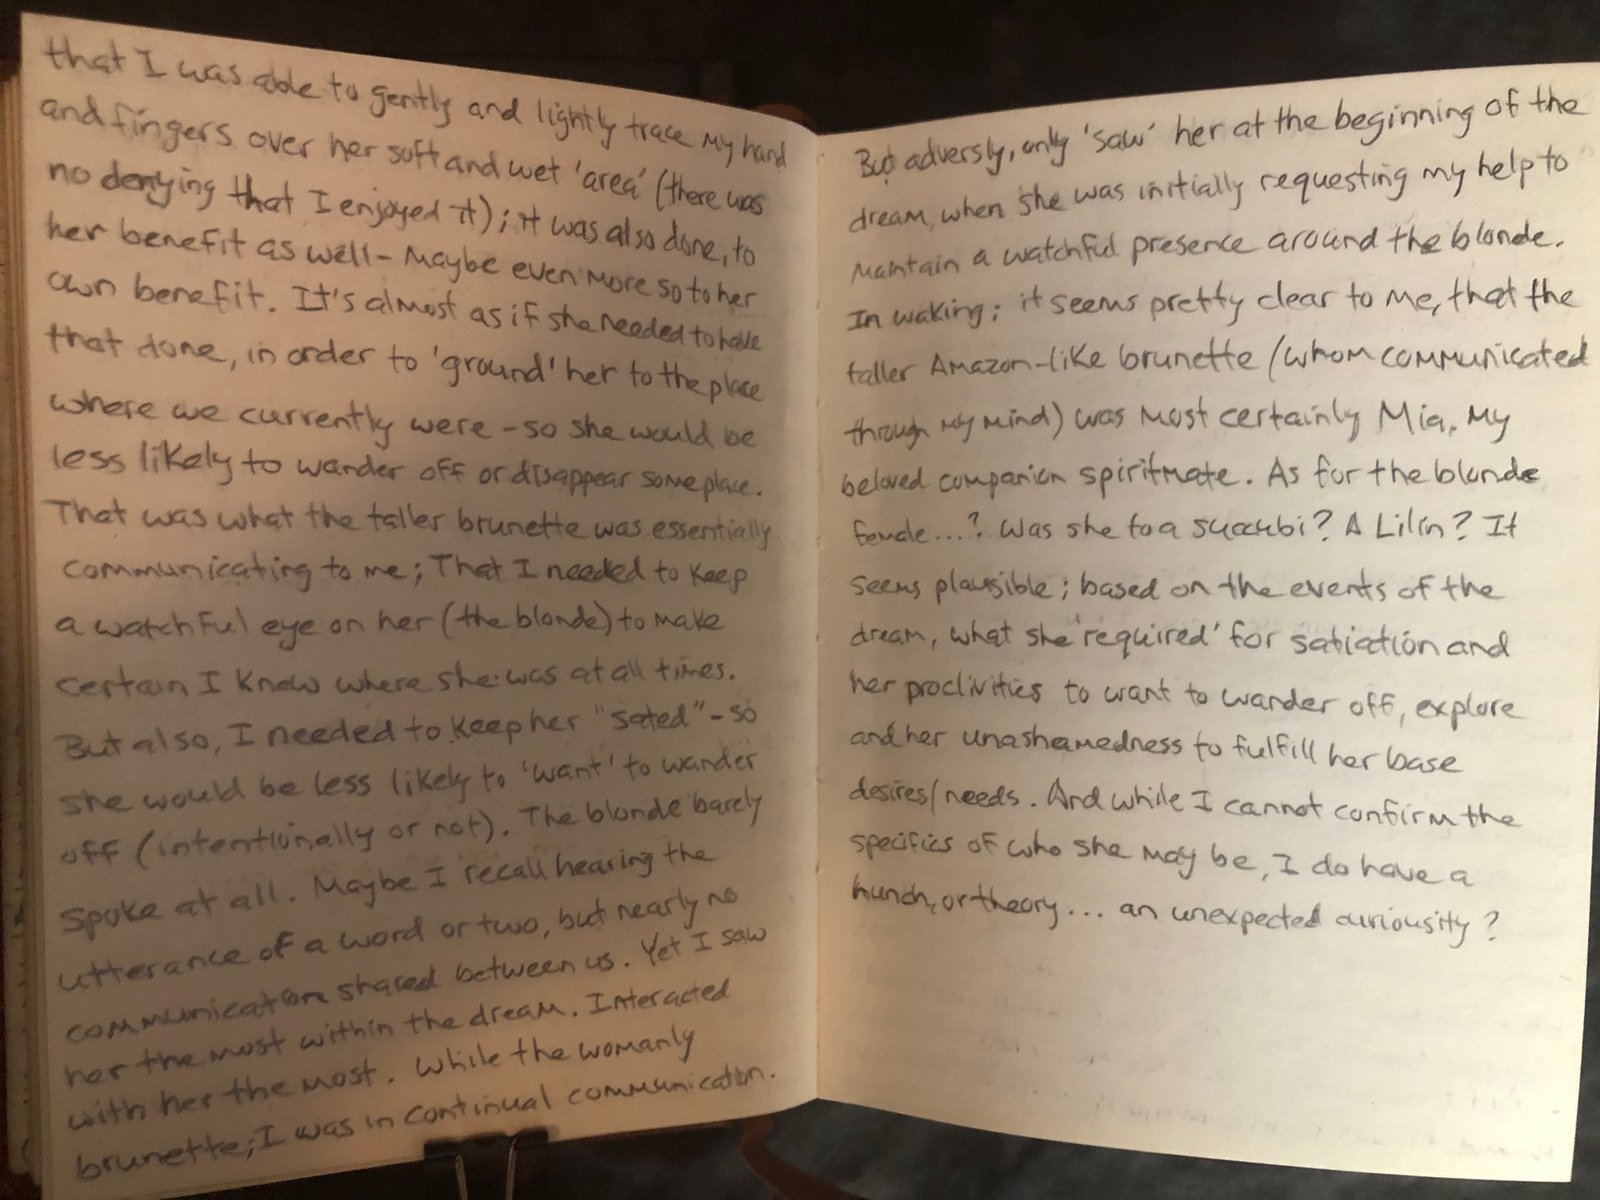 that I was able to gently and lightly trace my hand
and fingers over her soft and wet 'area' (there was
no denying that I enjoyed it); it was also done, to
her benefit as well - Maybe even more so to her
own benefit. It's almost as if she needed to have
that done, in order to 'ground' her to the place
where we currently were - so she would be
less likely to wander off or disappear someplace.
That was what the taller brunette was essentially
communicating to me; That I needed to keep
a watchful eye on her (the blonde) to make
certain I know where she was at all times.
But also, I needed to keep her "sated" - so
she would be less likely to 'want' to wander
off (intentionally or not). The blonde barely
spoke at all. Maybe I recall hearing the
utterance of a word or two, but nearly no
communication shared between us. Yet I saw
her the most within the dream. Interacted
with her the most. While the womanly
brunette; I was in continual communication.
But adversly, only 'saw' her at the beginning of the
dream, when she was initially requesting my help to
maintain a watchful presence around the blonde.
In waking; it seems pretty clear to me, that the
taller Amazon-like brunette (whom communicated
through my mind) was most certainly Mia, my
beloved companion spiritmate. As for the blonde
female...? Was she to a succubi? A Lilin? It
seems plausible; based on the events of the
dream, what she 'required' for satiation and
her proclivities to want to wander off, explore
and her unashamedness to fulfill her base
desires/needs. And while I cannot confirm the
specifics of who she may be, I do have a
hunch, or theory... an unexpected curiousity?